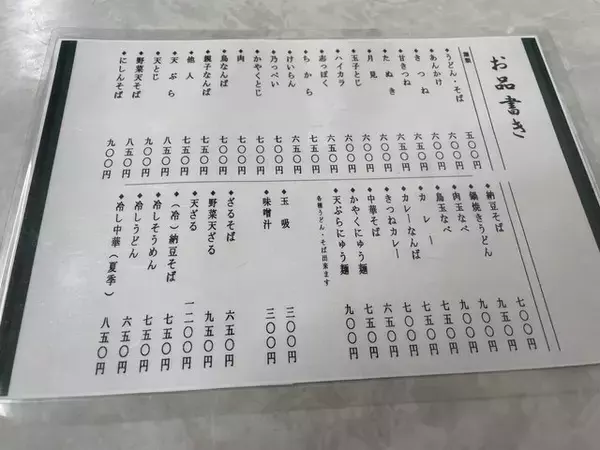 お品書き
麺類
◆うどん・そば 五〇〇円
◆あんかけ 六〇〇円
◆きつね 六〇〇円
◆甘きつね 六五〇円
◆たぬき 六〇〇円
◆月見 六〇〇円
◆玉子とじ 六〇〇円
◆ハイカラ 六〇〇円
◆志っぽく 六五〇円
◆ちから 七五〇円
◆けいらん 六五〇円
◆乃っぺい 七〇〇円
◆かやくとじ 七〇〇円
◆肉 七〇〇円
◆鳥なんば 七〇〇円
◆親子なんば 七五〇円
◆他人 七五〇円
◆天ぷら 八五〇円
◆天とじ 九〇〇円
◆野菜天そば 八五〇円
◆にしんそば 九〇〇円
◆納豆そば 七〇〇円
◆鍋焼きうどん 九五〇円
◆肉玉なべ 九〇〇円
◆鳥玉なべ 九〇〇円
◆カレー 七〇〇円
◆カレーなんば 七五〇円
◆きつねカレー 七五〇円
◆中華そば 六五〇円
◆かやくにゅう麺 七五〇円
◆天ぷらにゅう麺 九〇〇円
各種うどん・そば出来ます
◆玉吸 三〇〇円
◆味噌汁 三〇〇円
◆ざるそば 六五〇円
◆野菜天ざる 九五〇円
◆天ざる 一二〇〇円
◆（冷）納豆そば 七五〇円
◆冷しそうめん 七五〇円
◆冷しうどん 六五〇円
◆冷し中華（夏季） 八五〇円